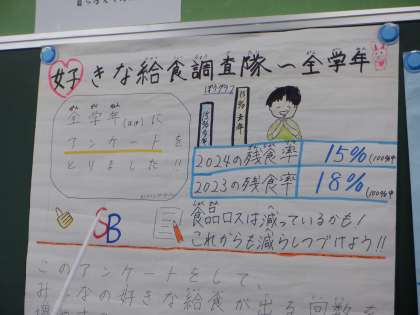 好きな給食調査隊〜全学年
ぜんがくねん
全学年に
アンケートを
とりました!!
ぼうグラフ
2024の残食率 15% (100%中
2023の残食率 18% (100%中
SB
食品ロスは減っているかも!
これからも減らしつづけよう!!
このアンケートをして、
みんなの好きな給食が出る回数を